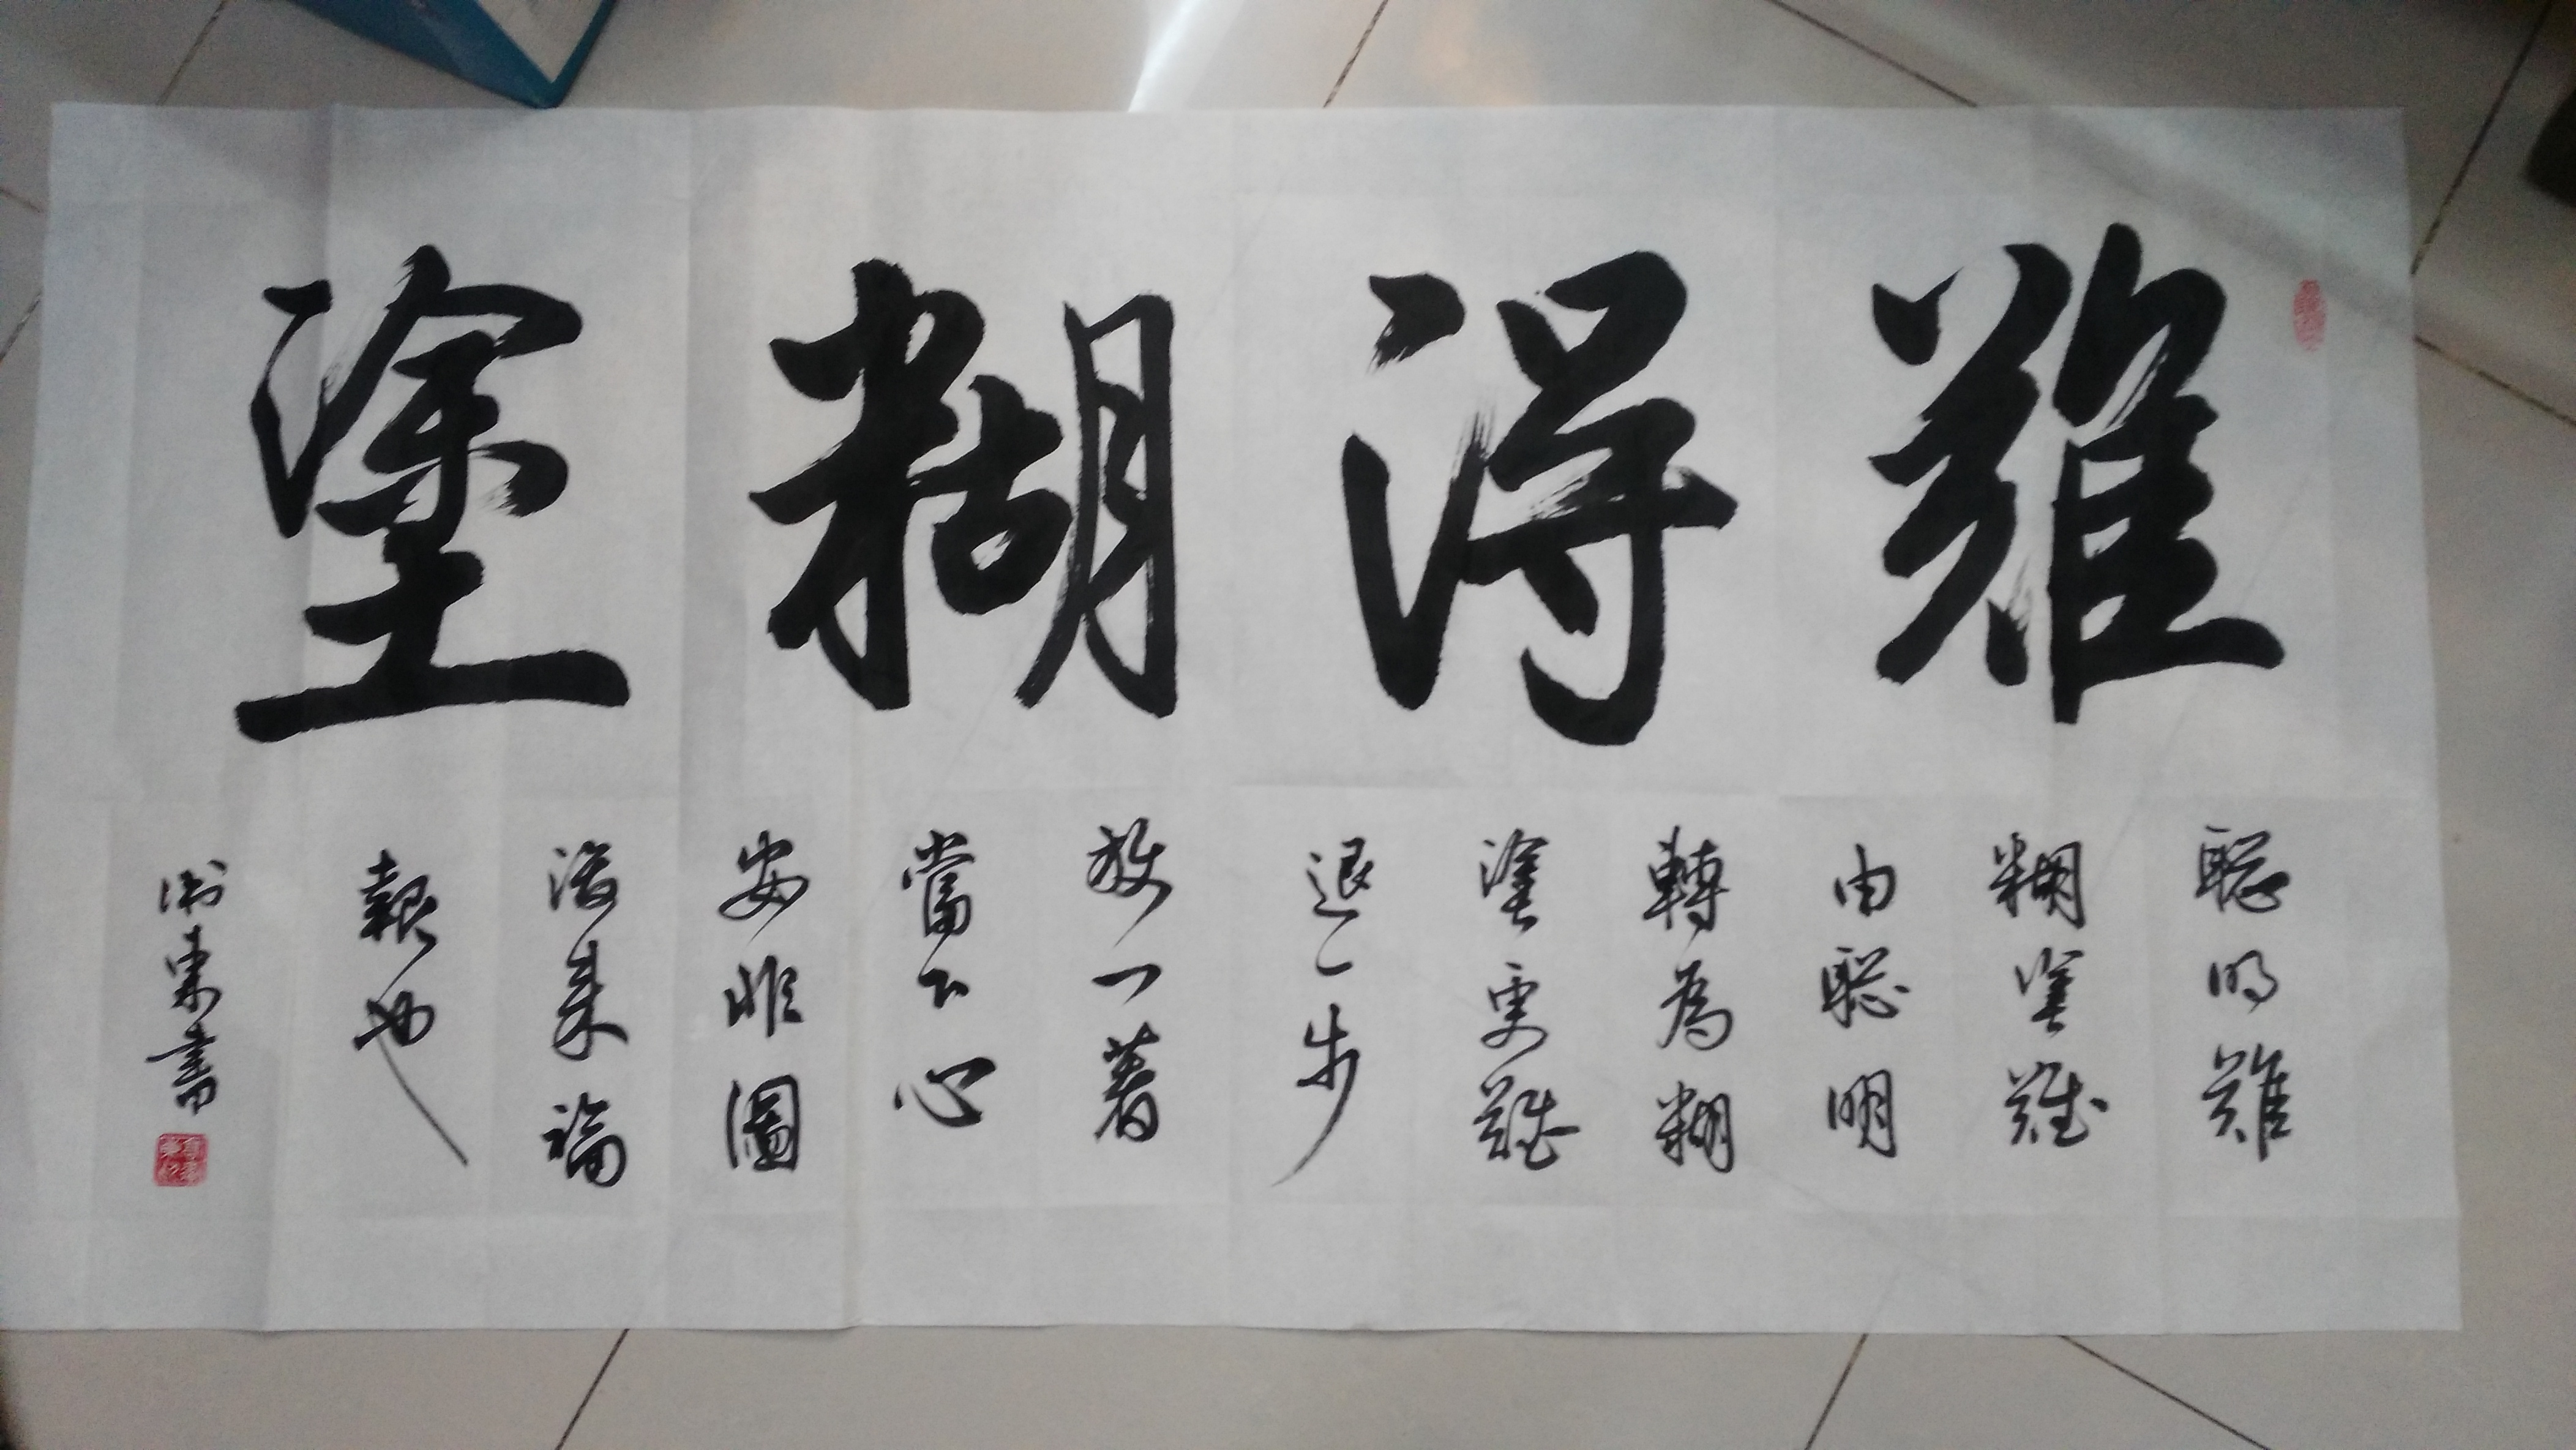 難得糊塗
聰明難
糊塗難
由聰明
轉為糊
塗更難
退一步
放一著
當下心
安非圖
後来福
報也
書